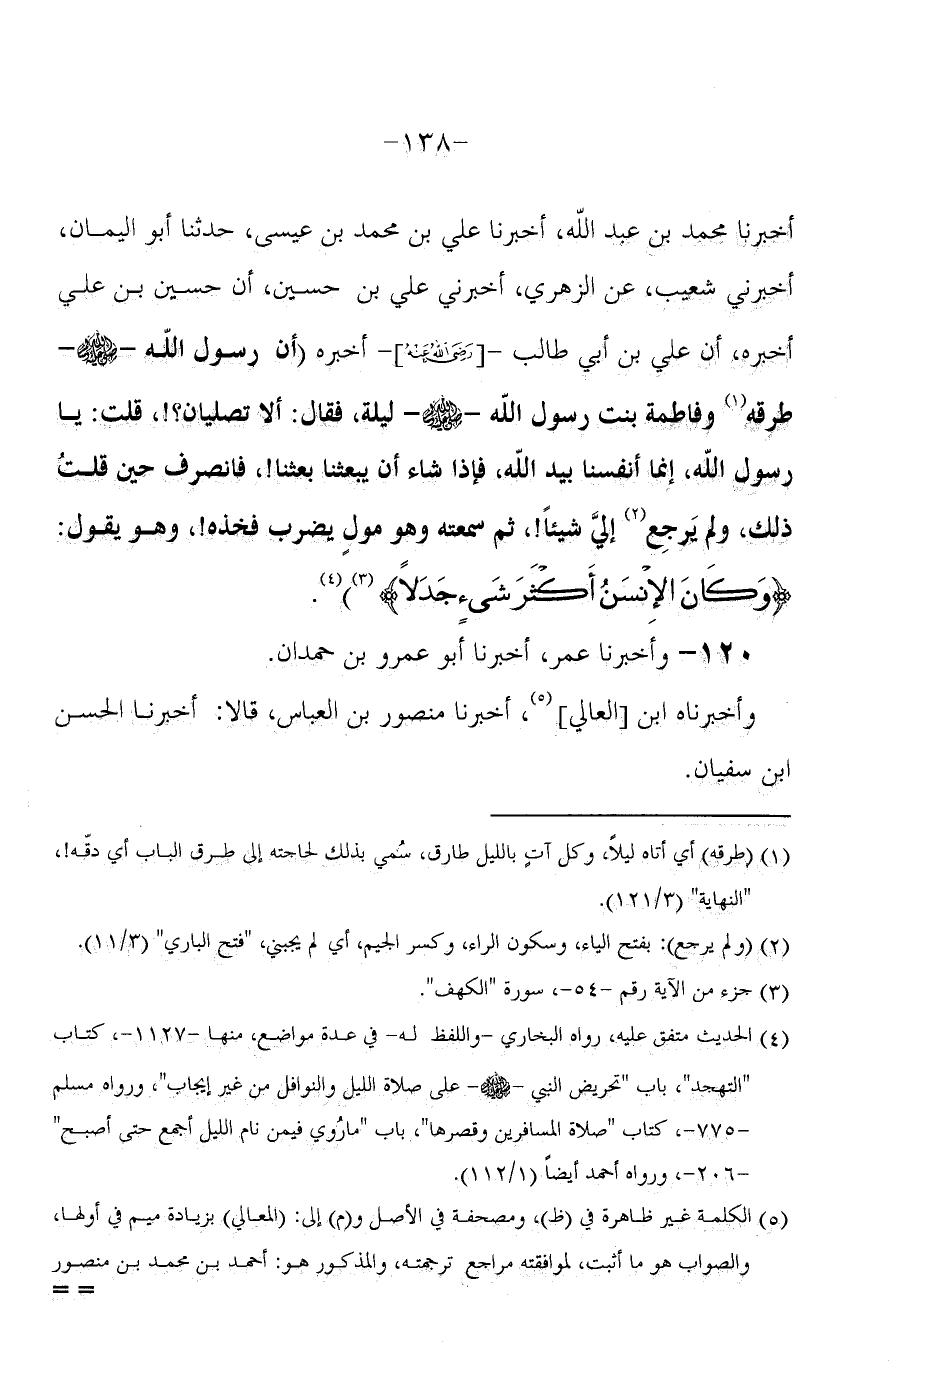 -١٣٨-
أخبرنا محمد بن عبد اللّه، أخبرنا علي بن محمد بن عيسى، حدثنا أبو اليمـان،
أخبرني شعيب، عن الزهري، أخبرني علي بن حسين، أن حسين بن علي
أخبره، أن علي بن أبي طالب -[رَضِيَ اللهُ عَنْهُ]- أخبره (أن رسول اللّه -ﷺ-
طرقه(١) وفاطمة بنت رسول اللّه -ﷺ- ليلة، فقال: ألا تصليان؟!، قلت: يـا
رسول اللّه، إنما أنفسنا بيد اللّه، فإذا شاء أن يبعثنا بعثنا!، فانصرف حين قلـتُ
ذلك، ولم يَرجِع(٢) إليَّ شيئاً!، ثم سمعته وهو مولٍ يضرب فخذه!، وهـو يقول:
﴿وَكَانَ الإِنسَنُ أَكْثَرَ شَىءٍ جَدَلاً﴾(٣))(٤).
١٢٠- وأخبرنا عمر، أخبرنا أبو عمرو بن حمدان.
وأخبرناه ابن [العالي](٥)، أخبرنا منصور بن العباس، قالا: أخبرنـا الحسـن
ابن سفيان.
(١) (طرقه) أي أتاه ليلاً، وكل آتٍ بالليل طارق، سُمي بذلك لحاجته إلى طـرق البـاب أي دقّـه!،
"النهاية" (١٢١/٣).
(٢) (ولم يرجع): بفتح الياء، وسكون الراء، وكسر الجيم، أي لم يجبني، "فتح الباري" (١١/٣).
(٣) جزء من الآية رقم -٥٤-، سورة "الكهف".
(٤) الحديث متفق عليه، رواه البخاري -واللفظ لـه- في عدة مواضـع، منهـا -١١٢٧-، كتـاب
"التهجد"، باب "تحريض النبي -ﷺ- على صلاة الليل والنوافل من غير إيجاب"، ورواه مسلم
-٧٧٥-، كتاب "صلاة المسافرين وقصرها"، باب "مارُوي فيمن نام الليل أجمع حتى أصبـح"
-٢٠٦-، ورواه أحمد أيضاً (١١٢/١).
(٥) الكلمـة غـير ظـاهرة في (ظ)، ومصحفـة في الأصل و(م) إلى: (المعالي) بزيـادة ميـم في أولهـا،
والصواب هو ما أثبت، لموافقته مراجع ترجمتـه، والمذكـور هـو: أحمـد بـن محمـد بـن منصـور
= =